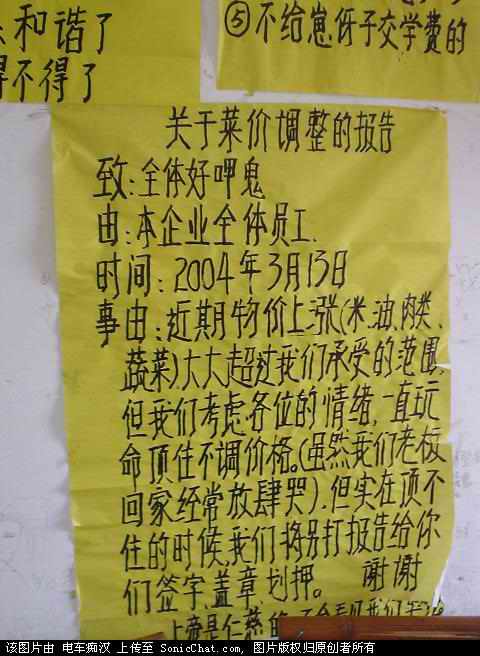 和谐了
不得了
⑤不给崽伢子交学费的
关于菜价调整的报告
致:全体好呷鬼
由:本企业全体员工.
时间:2004年3月13日
事由:近期物价上涨(米、油、肉类、
蔬菜)大大超过我们承受的范围,
但我们考虑各位的情绪,一直玩
命顶住不调价格。(虽然我们老板
回家经常放肆哭).但实在顶不
住的时候,我们将另打报告给你
们签字、盖章、划押。 谢谢
上帝是仁慈的
该图片由 电车痴汉 上传至 SonicChat.com , 图片版权归原创者所有